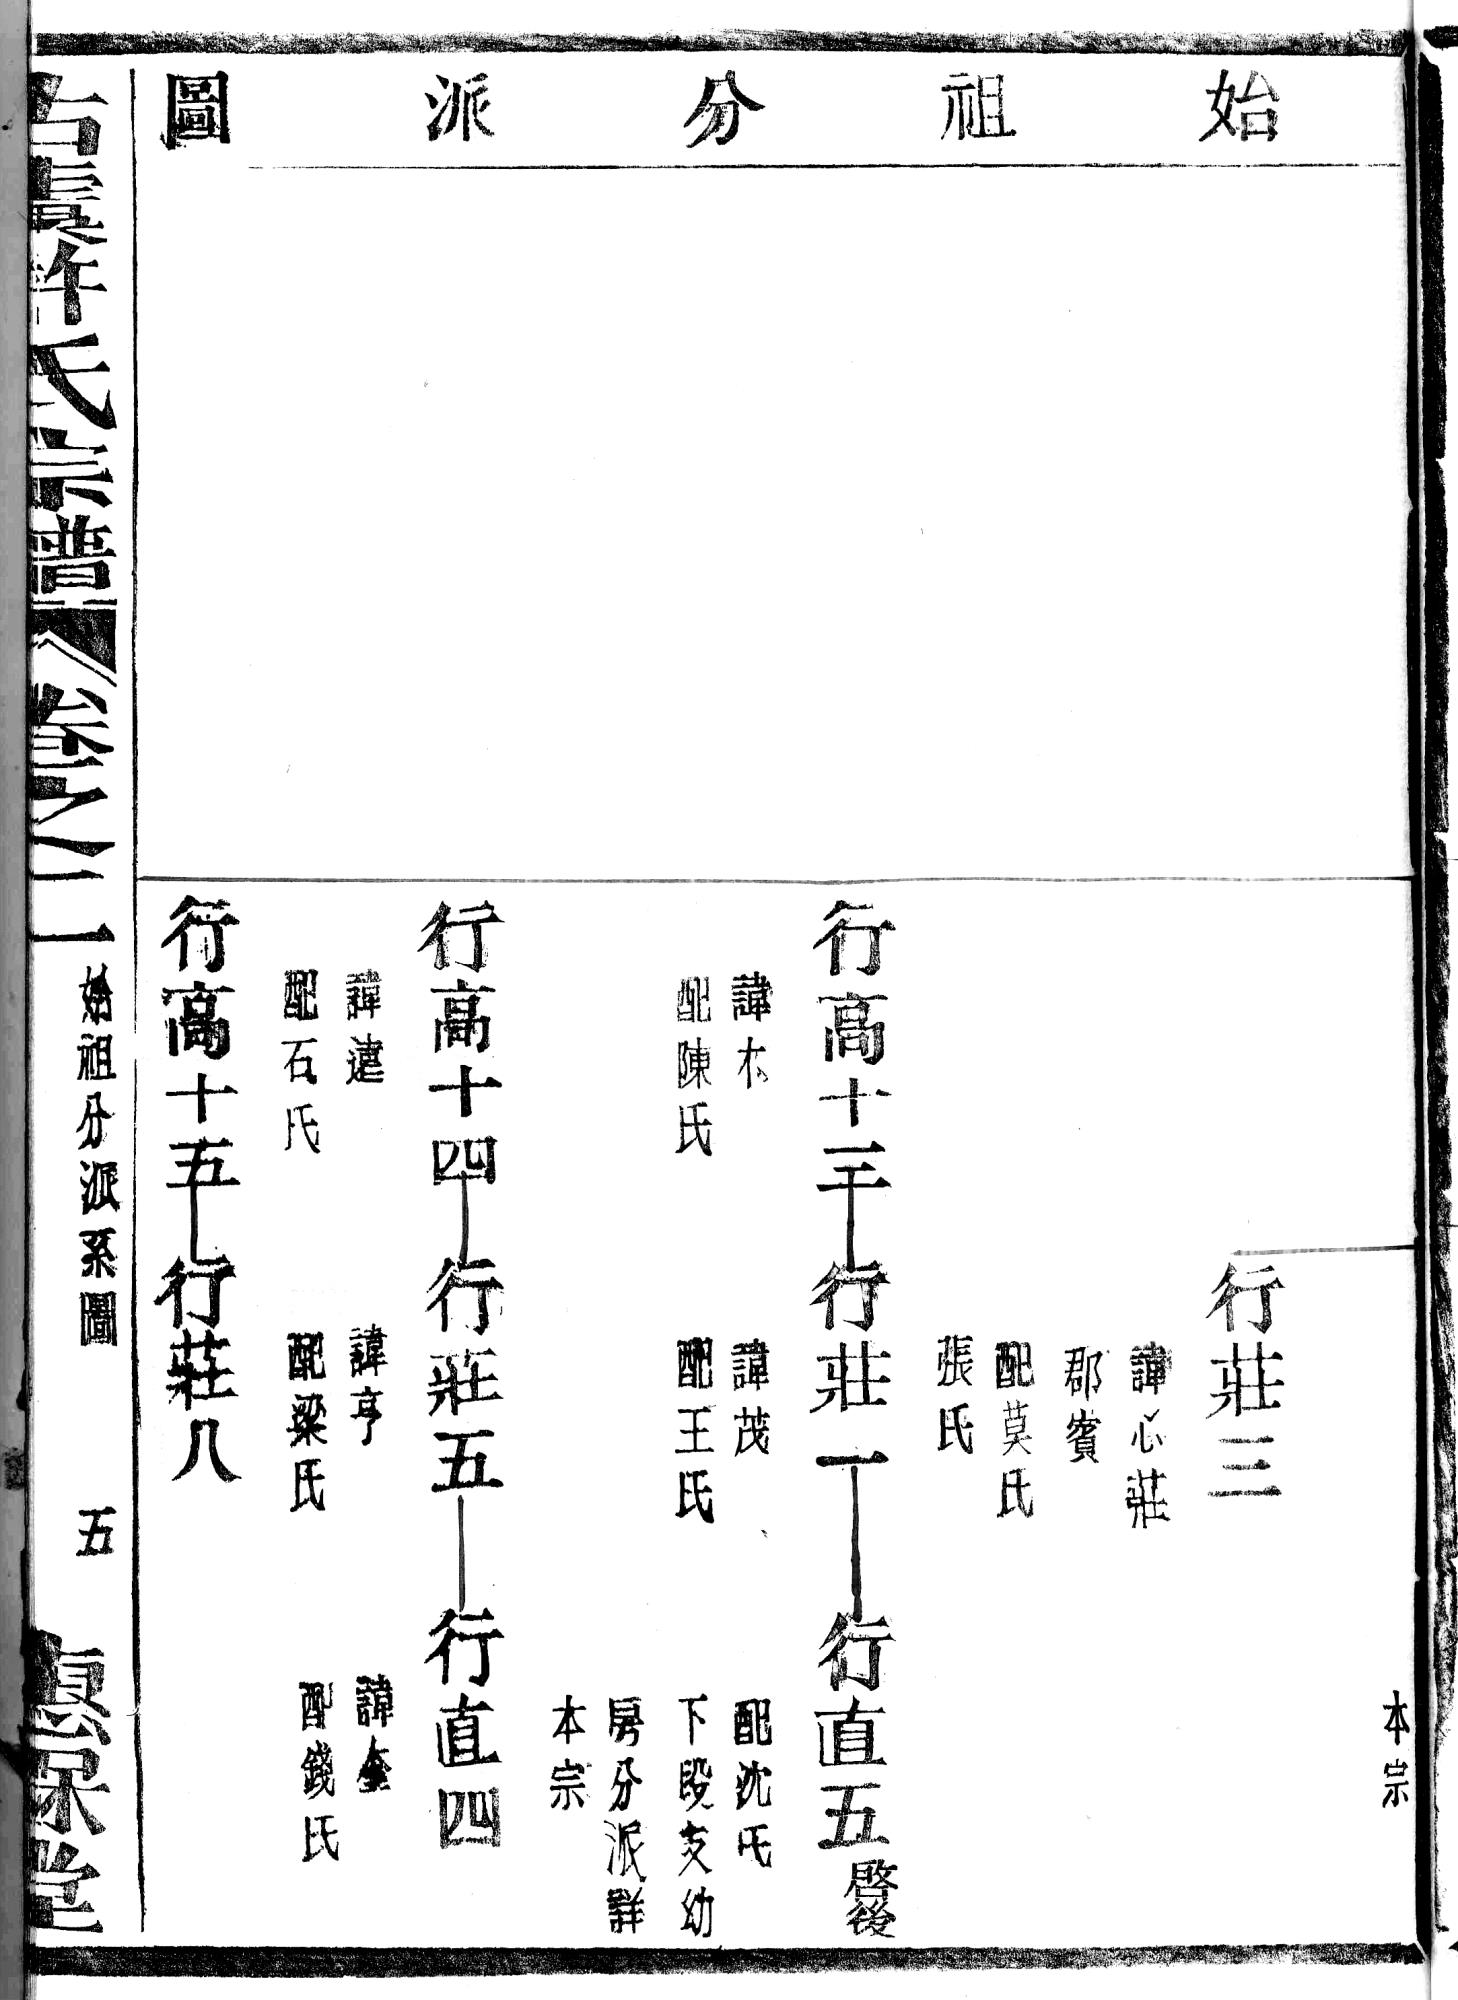 始祖分派圖
本宗
行莊三
諱心莊
郡賓
配莫氏
張氏
行高十三 行莊一 行直五 啓後
諱 諱茂 配沈氏
配陳氏 配王氏 下段支幼
房分派詳
本宗
行高十四 行莊五 行直四
諱 諱亨 諱
配石氏 配梁氏 配錢氏
行高十五 行莊八
古虞許氏宗譜 卷之二 始祖分派系圖 五 堂